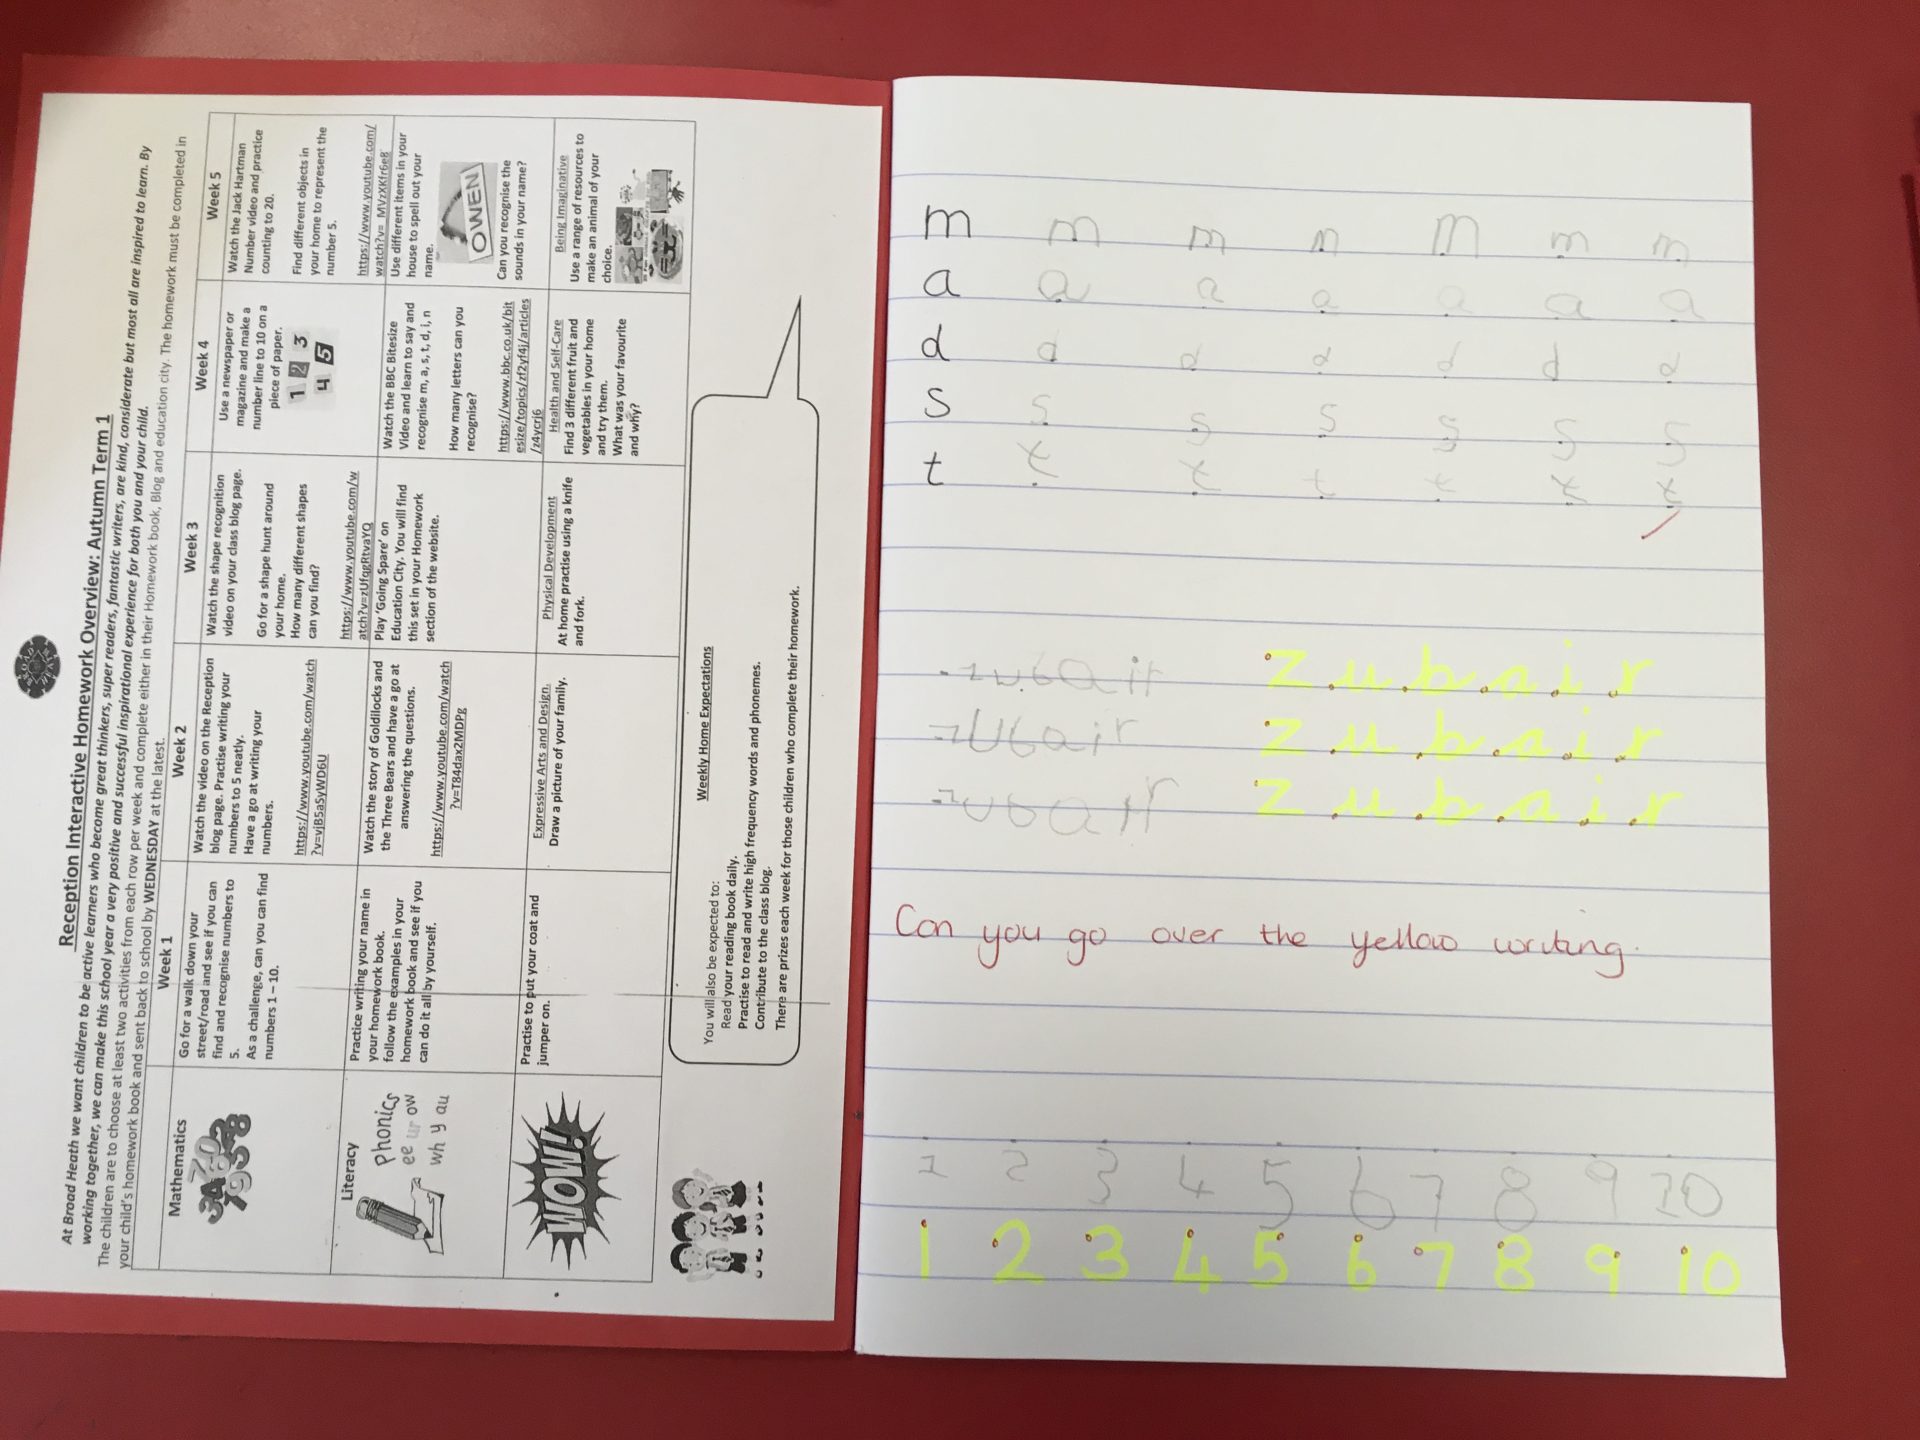 Reception Interactive Homework Overview: Autumn Term 1
At Broad Heath we want children to be active learners who become great thinkers, super readers, fantastic writers, are kind, considerate but most all are inspired to learn. By
working together, we can make this school year a very positive and successful inspirational experience for both you and your child.
The children are to choose at least two activities from each row per week and complete either in their Homework book, Blog and education city. The homework must be completed in
your child's homework book and sent back to school by WEDNESDAY at the latest.
Week 1
Week 2
Week 3
Week 4
Week 5
Mathematics
Go for a walk down your
street/road and see if you can
find and recognise numbers to
5.
As a challenge, can you can find
numbers 1 – 10.
Watch the video on the Reception
blog page. Practise writing your
numbers to 5 neatly.
Have a go at writing your
numbers.
https://www.youtube.com/watch
?v=vjB5aSyWD6U
Watch the shape recognition
video on your class blog page.
Go for a shape hunt around
your home.
How many different shapes
can you find?
https://www.youtube.com/w
atch?v=zUfqgRtvaYQ
Use a newspaper or
magazine and make a
number line to 10 on a
piece of paper.
1 2 3
4 5
Watch the Jack Hartman
Number video and practice
counting to 20.
Find different objects in
your home to represent the
number 5.
https://www.youtube.com/
watch?v=_MVzXKfr6e8
Literacy
Phonics
ee ur ow
wh y au
Practice writing your name in
your homework book.
follow the examples in your
homework book and see if you
can do it all by yourself.
Watch the story of Goldilocks and
the Three Bears and have a go at
answering the questions.
https://www.youtube.com/watch
?v=T84dax2MDPg
Play 'Going Spare' on
Education City. You will find
this set in your Homework
section of the website.
Watch the BBC Bitesize
Video and learn to say and
recognise m, a, s, t, d, i, n
How many letters can you
recognise?
https://www.bbc.co.uk/bit
esize/topics/zf2yf4j/articles
/z4ycrj6
Use different items in your
house to spell out your
name.
OWEN
Can you recognise the
sounds in your name?
WOW!
Practise to put your coat and
jumper on.
Expressive Arts and Design.
Draw a picture of your family.
Physical Development
At home practise using a knife
and fork.
Health and Self-Care
Find 3 different fruit and
vegetables in your home
and try them.
What was your favourite
and why?
Being Imaginative
Use a range of resources to
make an animal of your
choice.
Weekly Home Expectations
You will also be expected to:
Read your reading book daily.
Practise to read and write high frequency words and phonemes.
Contribute to the class blog.
There are prizes each week for those children who complete their homework.
m m m m m m m
a a a a a a a
d d d d d d d
s s s s s s s
t t t t t t t
zubair zubair
zubair zubair
zubair zubair
Can you go over the yellow writing.
1 2 3 4 5 6 7 8 9 10
1 2 3 4 5 6 7 8 9 10